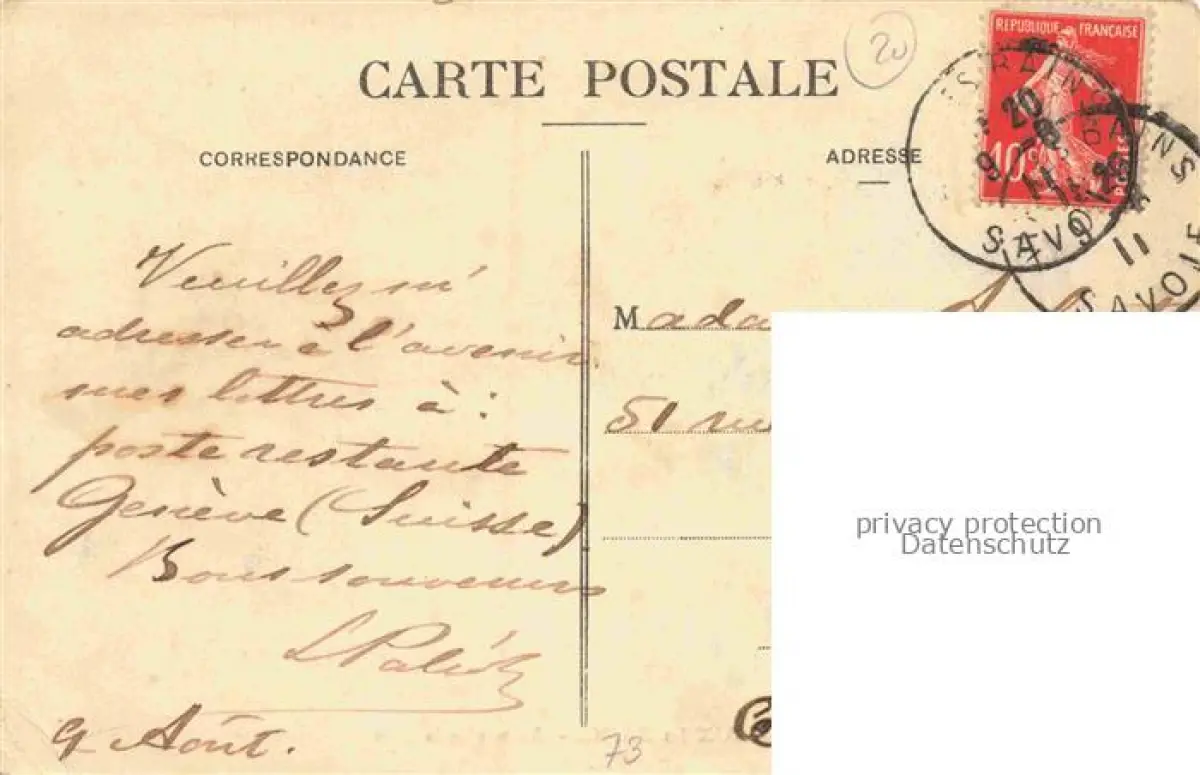 CARTE POSTALE
20
CORRESPONDANCE
ADRESSE
REPUBLIQUE FRANÇAISE
10c
POSTES
20
9 - 8
11
SAVOIE
BAINS
9 - 8
11
SAVOIE
Veuillez m'
adresser à l'avenir
mes lettres à :
poste restante
Genève (Suisse)
Bons souvenirs
9 Août.
Mada
51 rue
73
privacy protection
Datenschutz